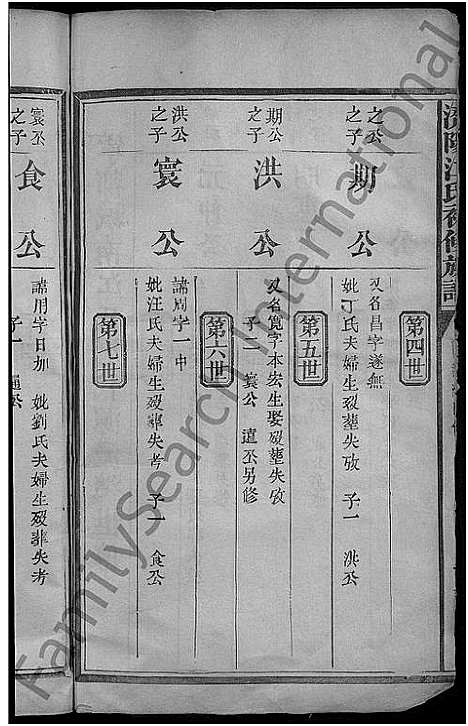 之公
之子
期公
又名昌字遂無
妣丁氏夫婦生歿塟失攷 子一 洪公
第四世
期公
之子
洪公
又名寬字本宏生娶歿塟失攷
子一 寰公 遣公另修
第五世
洪公
之子
寰公
諱周字一中
妣汪氏夫婦生歿塟失考 子一 食公
第六世
寰公
之子
食公
諱用字日加 妣劉氏夫婦生歿塟失考
子一
第七世
FamilySearch International